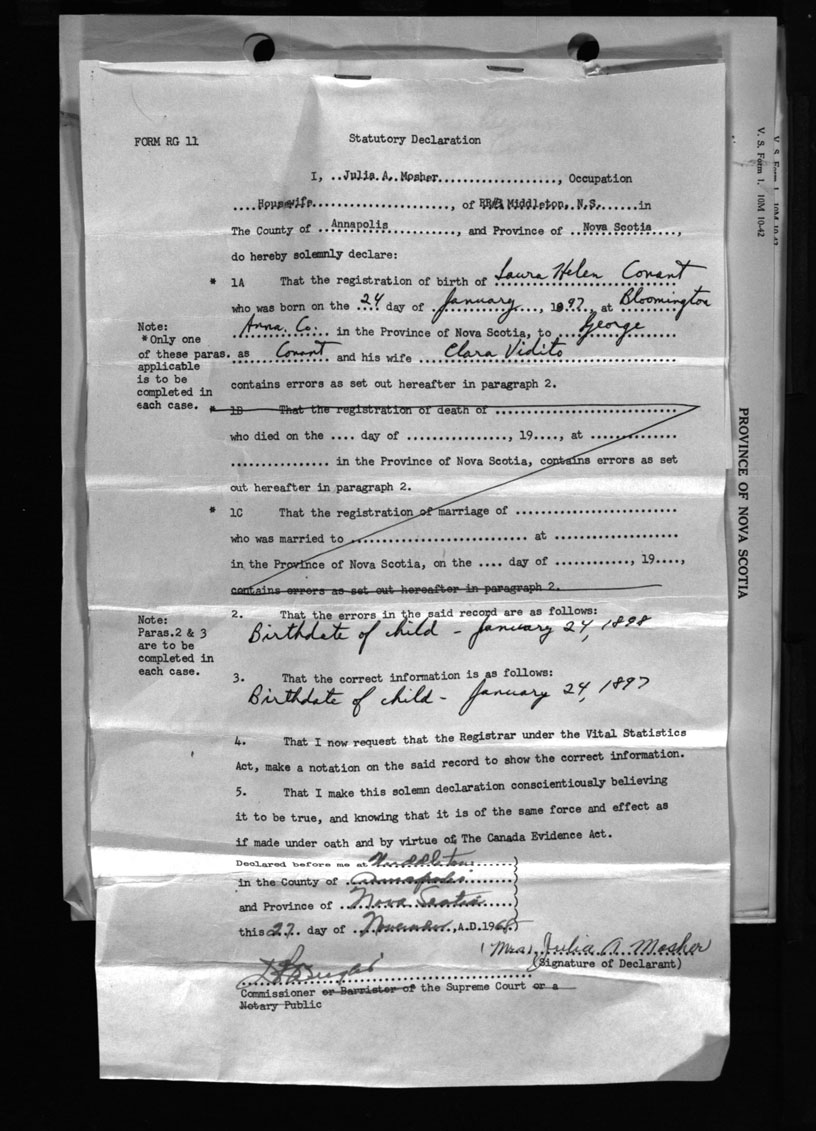 FORM RG 11
Statutory Declaration
I, ..Julia A. Mosher..................., Occupation
....Housewife......................., of RR#1 Middleton, N.S.......in
The County of ..Annapolis............, and Province of ..Nova Scotia....,
do hereby solemnly declare:
* 1A That the registration of birth of Laura Helen Conant
who was born on the 24 day of January, 1897, at Bloomington
Anna. Co. in the Province of Nova Scotia, to George
Note:
*Only one
of these paras.
applicable
is to be
completed in
each case.
as Conant and his wife Clara Vidito
contains errors as set out hereafter in paragraph 2.
* 1B That the registration of death of ................................
who died on the .... day of ..............., 19...., at ...............
................. in the Province of Nova Scotia, contains errors as set
out hereafter in paragraph 2.
* 1C That the registration of marriage of ............................
who was married to ............................. at .....................
in the Province of Nova Scotia, on the .... day of ............, 19....,
contains errors as set out hereafter in paragraph 2.
Note:
Paras.2 & 3
are to be
completed in
each case.
2. That the errors in the said record are as follows:
Birthdate of child - January 24, 1898
3. That the correct information is as follows:
Birthdate of child - January 24, 1897
4. That I now request that the Registrar under the Vital Statistics
Act, make a notation on the said record to show the correct information.
5. That I make this solemn declaration conscientiously believing
it to be true, and knowing that it is of the same force and effect as
if made under oath and by virtue of The Canada Evidence Act.
Declared before me at Middleton
in the County of Annapolis
and Province of Nova Scotia
this 27 day of November, A.D.196
(Mrs) Julia A Mosher
(Signature of Declarant)
Commissioner or Barrister of the Supreme Court or a
Notary Public
V. S. Form 1. 10M 10-42
V. S. Form 1. 10M 10-42
PROVINCE OF NOVA SCOTIA